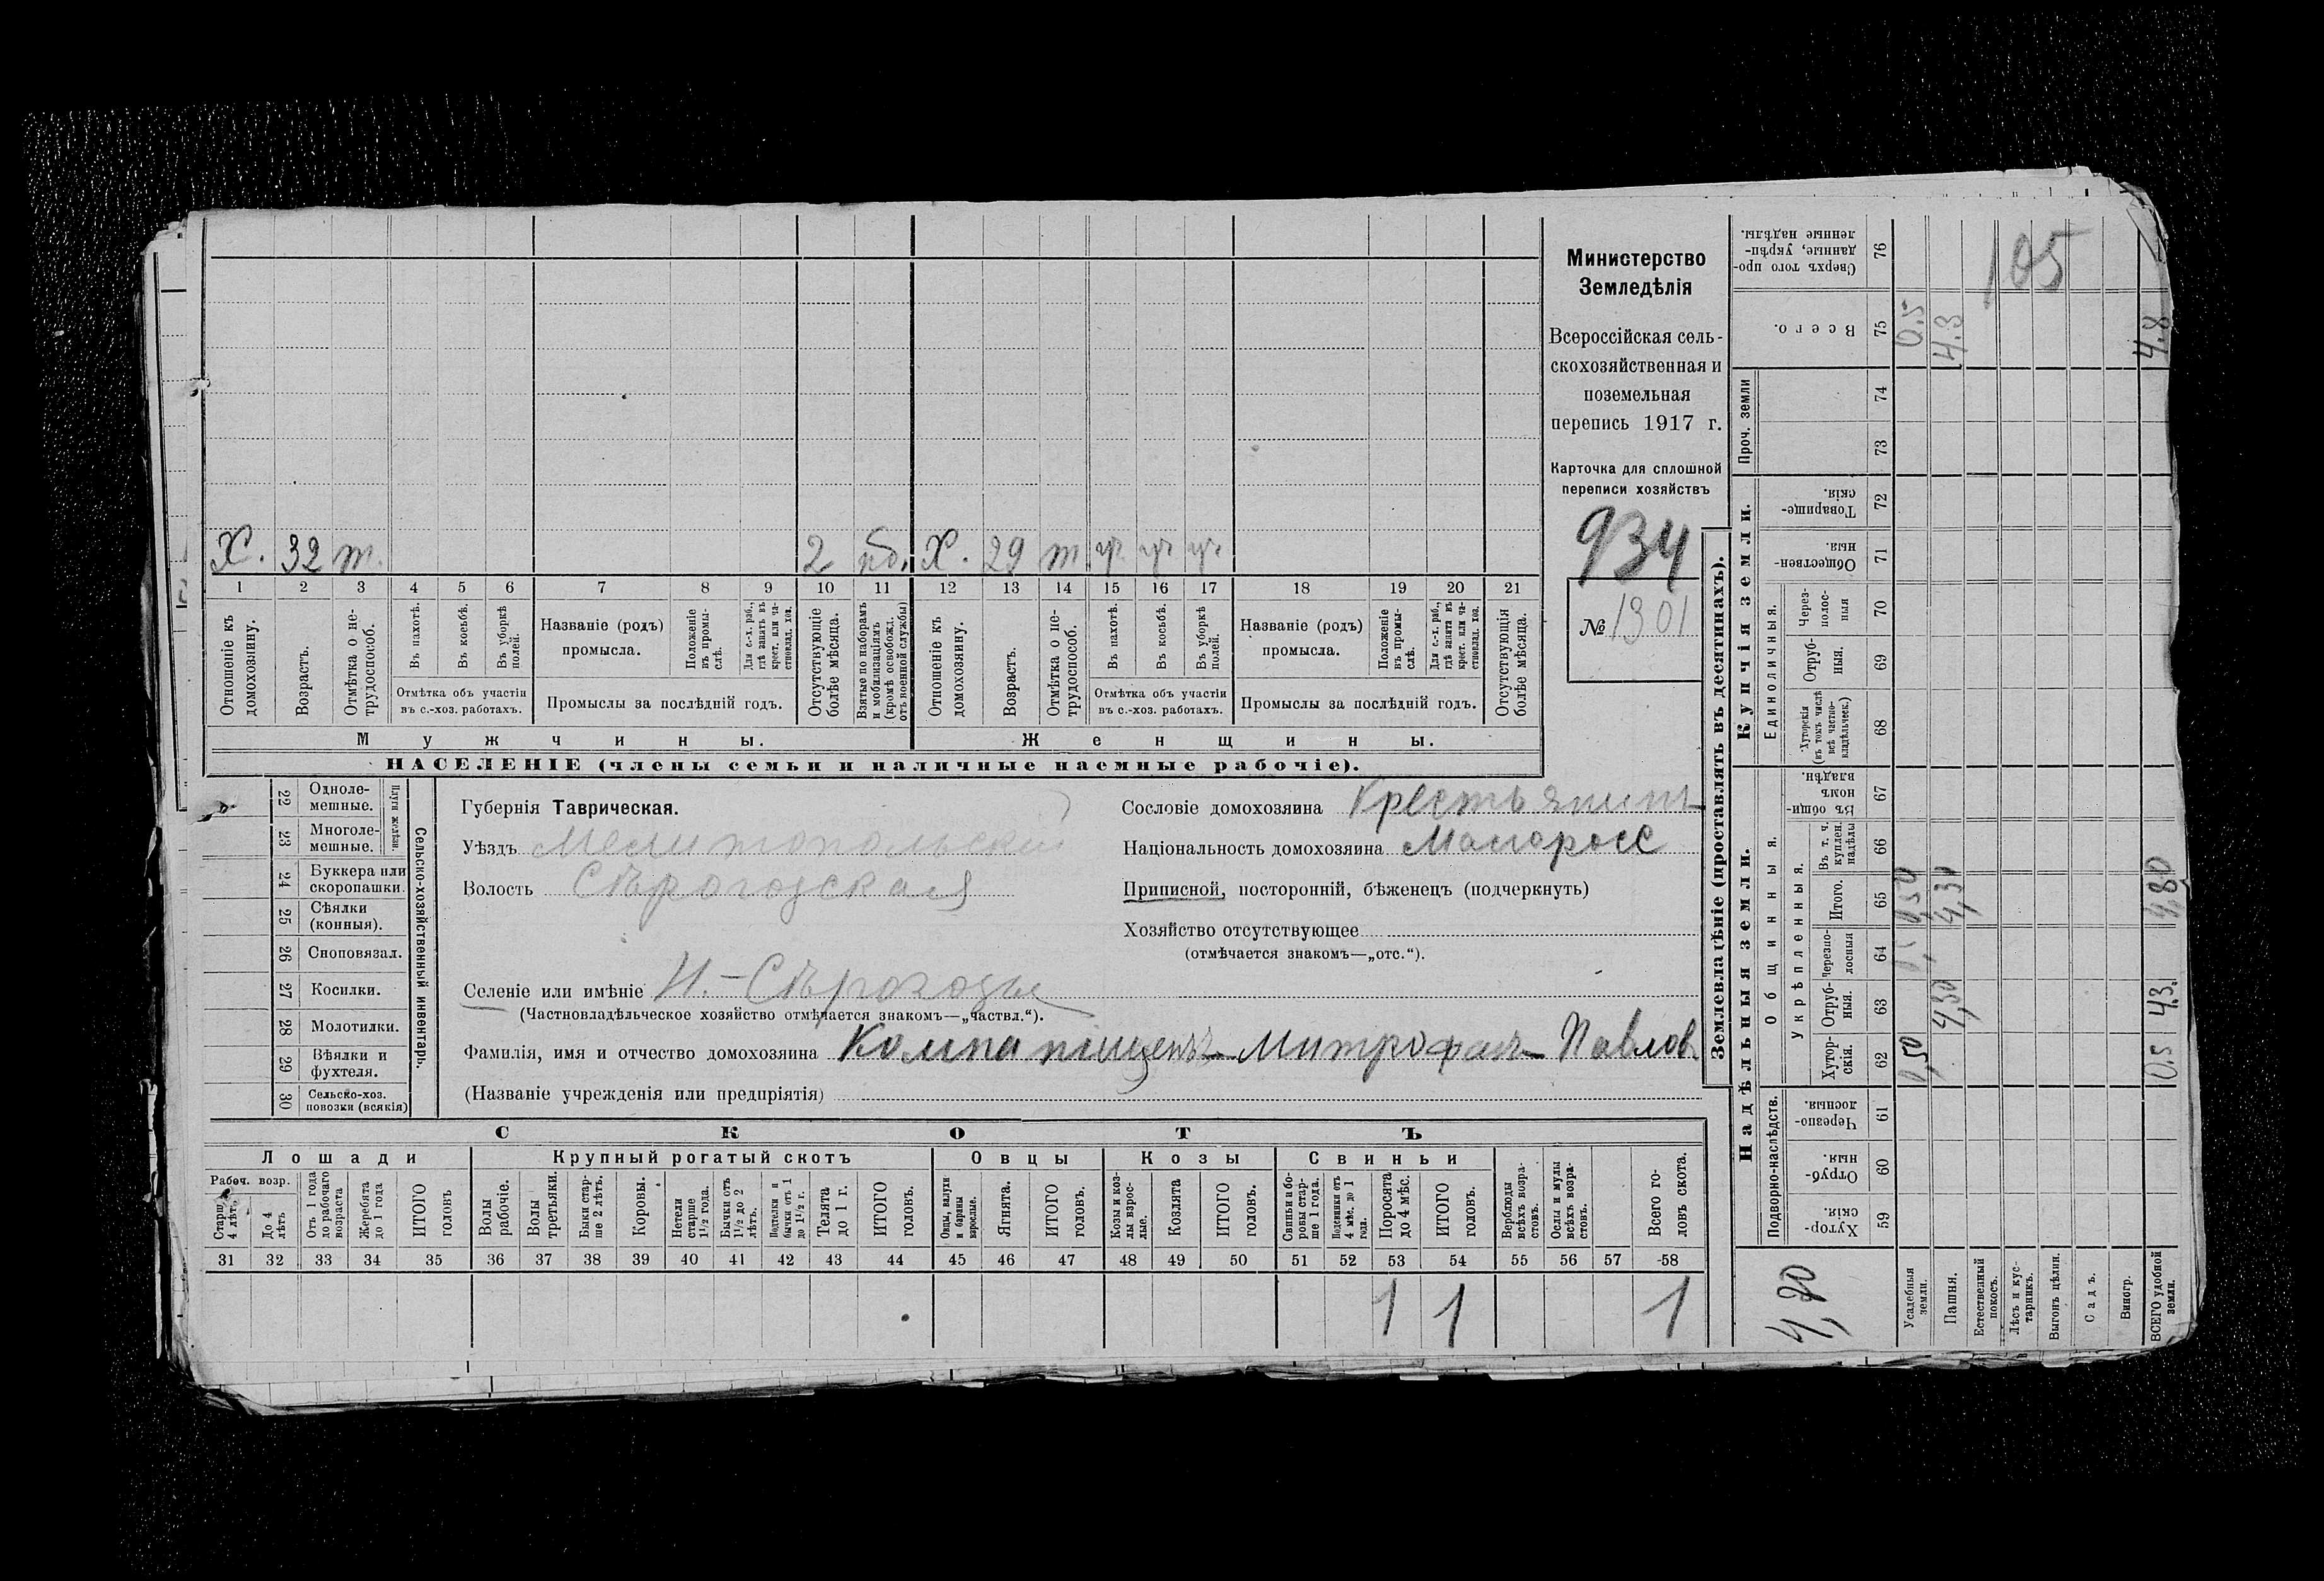 Х. 32 т. 2 об. Х. 29 т уч уч уч
1 2 3 4 5 6 7 8 9 10 11 12 13 14 15 16 17 18 19 20 21
Отношеніе къ домохозяину.
Возрастъ.
Отмѣтка о нетрудоспособ.
Въ пахотѣ.
Въ косьбѣ.
Въ уборкѣ полей.
Отмѣтка объ участіи
въ с.-хоз. работахъ.
Названіе (родъ)
промысла.
Положеніе въ промыслѣ.
Для с.-х. раб., гдѣ занятъ въ крест. или частновлад. хоз.
Промыслы за послѣдній годъ.
Отсутствующіе болѣе мѣсяца.
Взятые по наборамъ и мобилизаціямъ (кромѣ освобожд. отъ военной службы)
Отношеніе къ домохозяину.
Возрастъ.
Отмѣтка о нетрудоспособ.
Въ пахотѣ.
Въ косьбѣ.
Въ уборкѣ полей.
Отмѣтка объ участіи
въ с.-хоз. работахъ.
Названіе (родъ)
промысла.
Положеніе въ промыслѣ.
Для с.-х. раб., гдѣ занята въ крест. или частновлад. хоз.
Промыслы за послѣдній годъ.
Отсутствующія болѣе мѣсяца.
Мужчины. Женщины.
НАСЕЛЕНІЕ (члены семьи и наличные наемные рабочіе).
Министерство
Земледѣлія
Всероссійская сель-
скохозяйственная и
поземельная
перепись 1917 г.
Карточка для сплошной
переписи хозяйствъ
934
№ 1301
Сельско-хозяйственный инвентарь.
Плуги желѣзн.
22 Одноле-
мешные.
23 Многоле-
мешные.
24 Буккера или
скоропашки.
25 Сѣялки
(конныя).
26 Сноповязал.
27 Косилки.
28 Молотилки.
29 Вѣялки и
фухтеля.
30 Сельско-хоз.
повозки (всякія)
Губернія Таврическая.
Уѣздъ Мелитопольскій
Волость Сѣрогозская
Селеніе или имѣніе Н.-Сѣрогозы
(Частновладѣльческое хозяйство отмѣчается знакомъ—„частвл.“).
Сословіе домохозяина Крестьянинъ
Національность домохозяина Малоросс
Приписной, посторонній, бѣженецъ (подчеркнуть)
Хозяйство отсутствующее
(отмѣчается знакомъ—„отс.“).
Фамилія, имя и отчество домохозяина Компаніецъ Митрофанъ Павлов
(Названіе учрежденія или предпріятія)
СКОТЪ
Лошади Крупный рогатый скотъ Овцы Козы Свиньи
Рабоч. возр.
Старш. 4 лѣт.
До 4 лѣтъ
Отъ 1 года до рабочаго возраста
Жеребята до 1 года
ИТОГО головъ
Волы рабочіе.
Волы третьяки.
Быки старше 2 лѣтъ.
Коровы.
Нетели старше 1½ года.
Бычки отъ 1½ до 2 лѣтъ.
Подтелки и бычки отъ 1 до 1½ г.
Телята до 1 г.
ИТОГО головъ.
Овцы, валухи и бараны взрослые.
Ягнята.
ИТОГО головъ.
Козы и козлы взрослые.
Козлята
ИТОГО головъ.
Свиньи и боровы старше 1 года.
Подсвинки отъ 4 мѣс. до 1 года.
Поросята до 4 мѣс.
ИТОГО головъ.
Верблюды всѣхъ возрастовъ.
Ослы и мулы всѣхъ возрастовъ.
Всего головъ скота.
31 32 33 34 35 36 37 38 39 40 41 42 43 44 45 46 47 48 49 50 51 52 53 54 55 56 57 58
1 1 1
Землевладѣніе (проставлять въ десятинахъ).
Надѣльныя земли. Купчія земли.
Подворно-наслѣдств.
Общинныя.
Укрѣпленныя.
Единоличныя.
Проч. земли
Хуторскія. 59
Отрубныя. 60
Черезполосныя. 61
Хуторскія. 62
Отрубныя. 63
Черезполосныя 64
Итого. 65
Въ т. ч. куплен. надѣлы 66
Въ общинномъ владѣн. 67
Хуторскія (въ томъ числѣ всѣ частновладѣльческ.) 68
Отрубныя. 69
Черезполосныя 70
Общественныя. 71
Товарищескія. 72
73
74
Всего. 75
Сверхъ того проданные, укрѣпленные надѣлы. 76
4,80
Усадебныя земли. 0,50 0,50 0.5
Пашня. 4,30 4,30 4.3
Естественный покосъ.
Лѣсъ и кустарникъ.
Выгонъ цѣлин.
Садъ.
Виногр.
ВСЕГО удобной земли. 0.5 4.3. 4,80 4.8
105